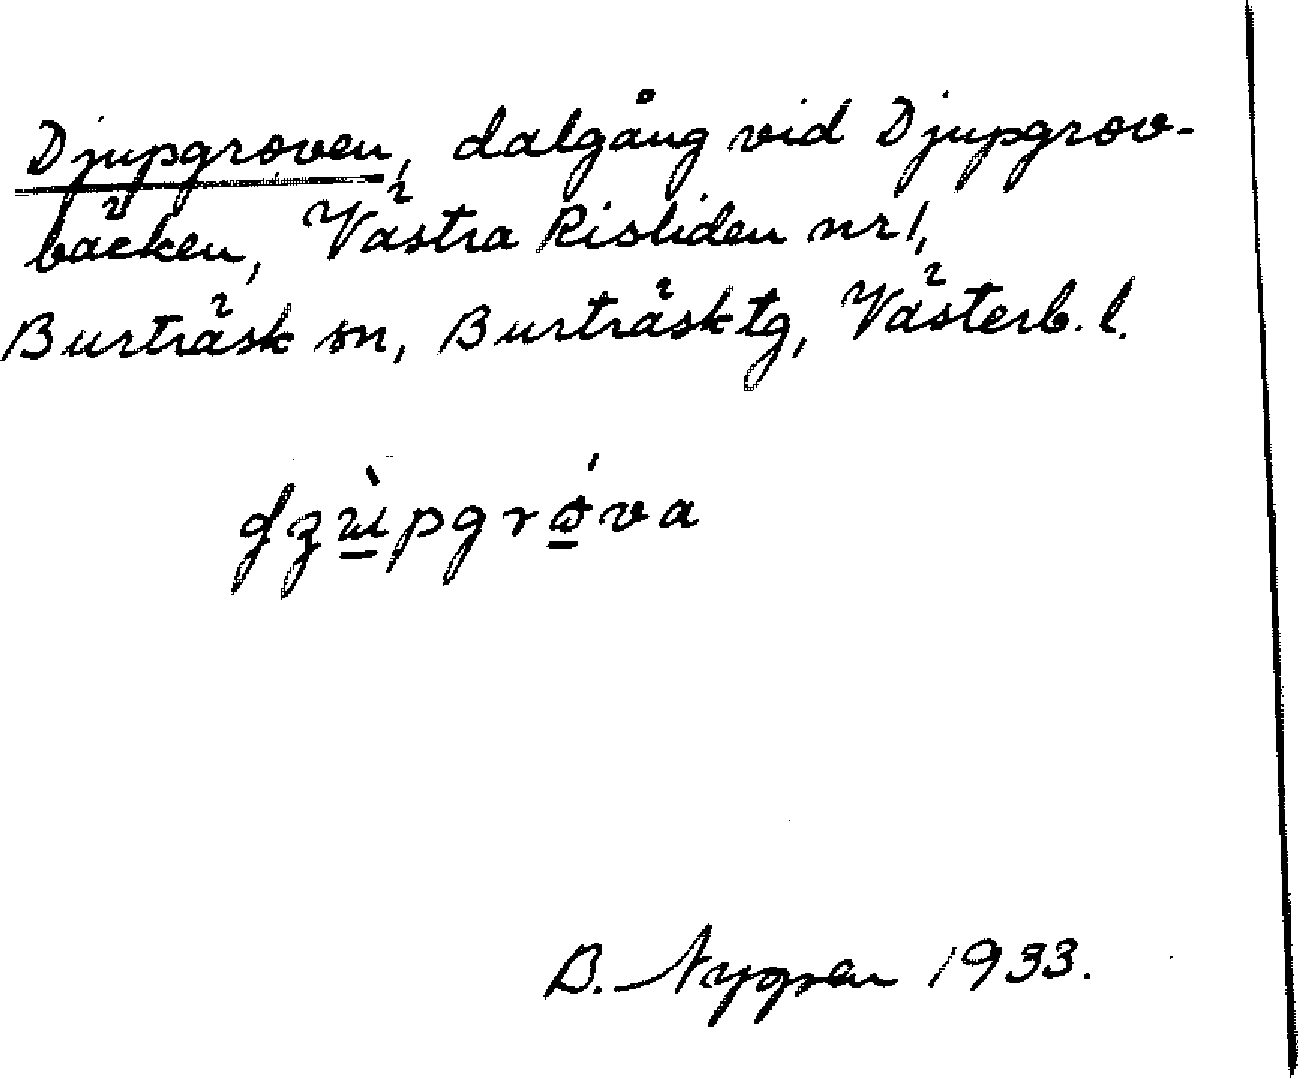 Djupgroven, dalgång vid Djupgrov-
bäcken, Västra Risliden nr 1,
Burträsk sn, Burträsk tg, Västerb. l.
B. Nygren 1933.